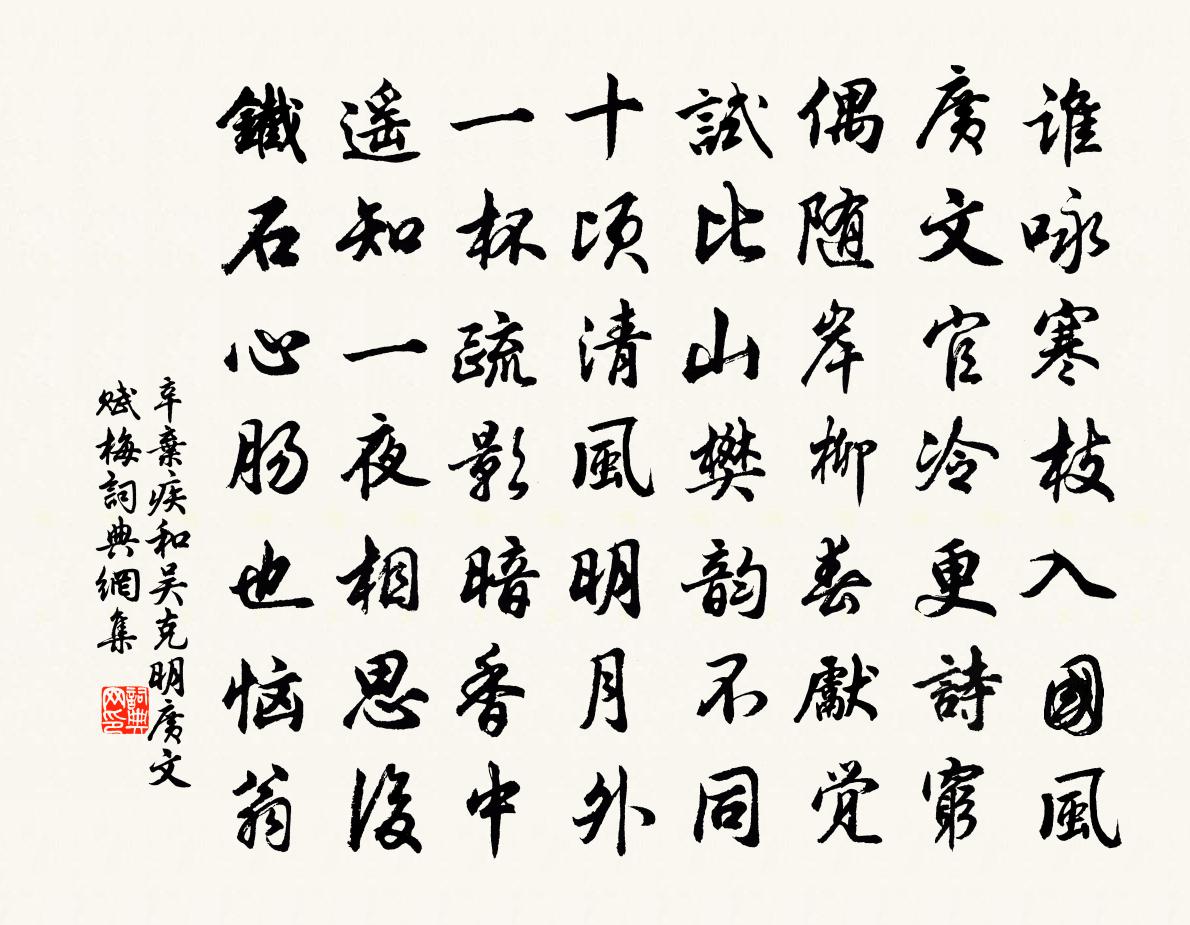 誰咏寒枝入國風
廣文官冷更詩窮
偶随岸柳春獻覚
試比山樊韵不同
十頃清風明月外
一杯疏影暗香中
遥知一夜相思後
鐵石心肠也恼翁
辛棄疾和吴克明廣文
賦梅詞典網集
詞典
网印